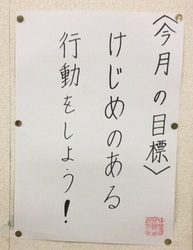 〈今月の目標〉
けじめのある
行動をしよう!